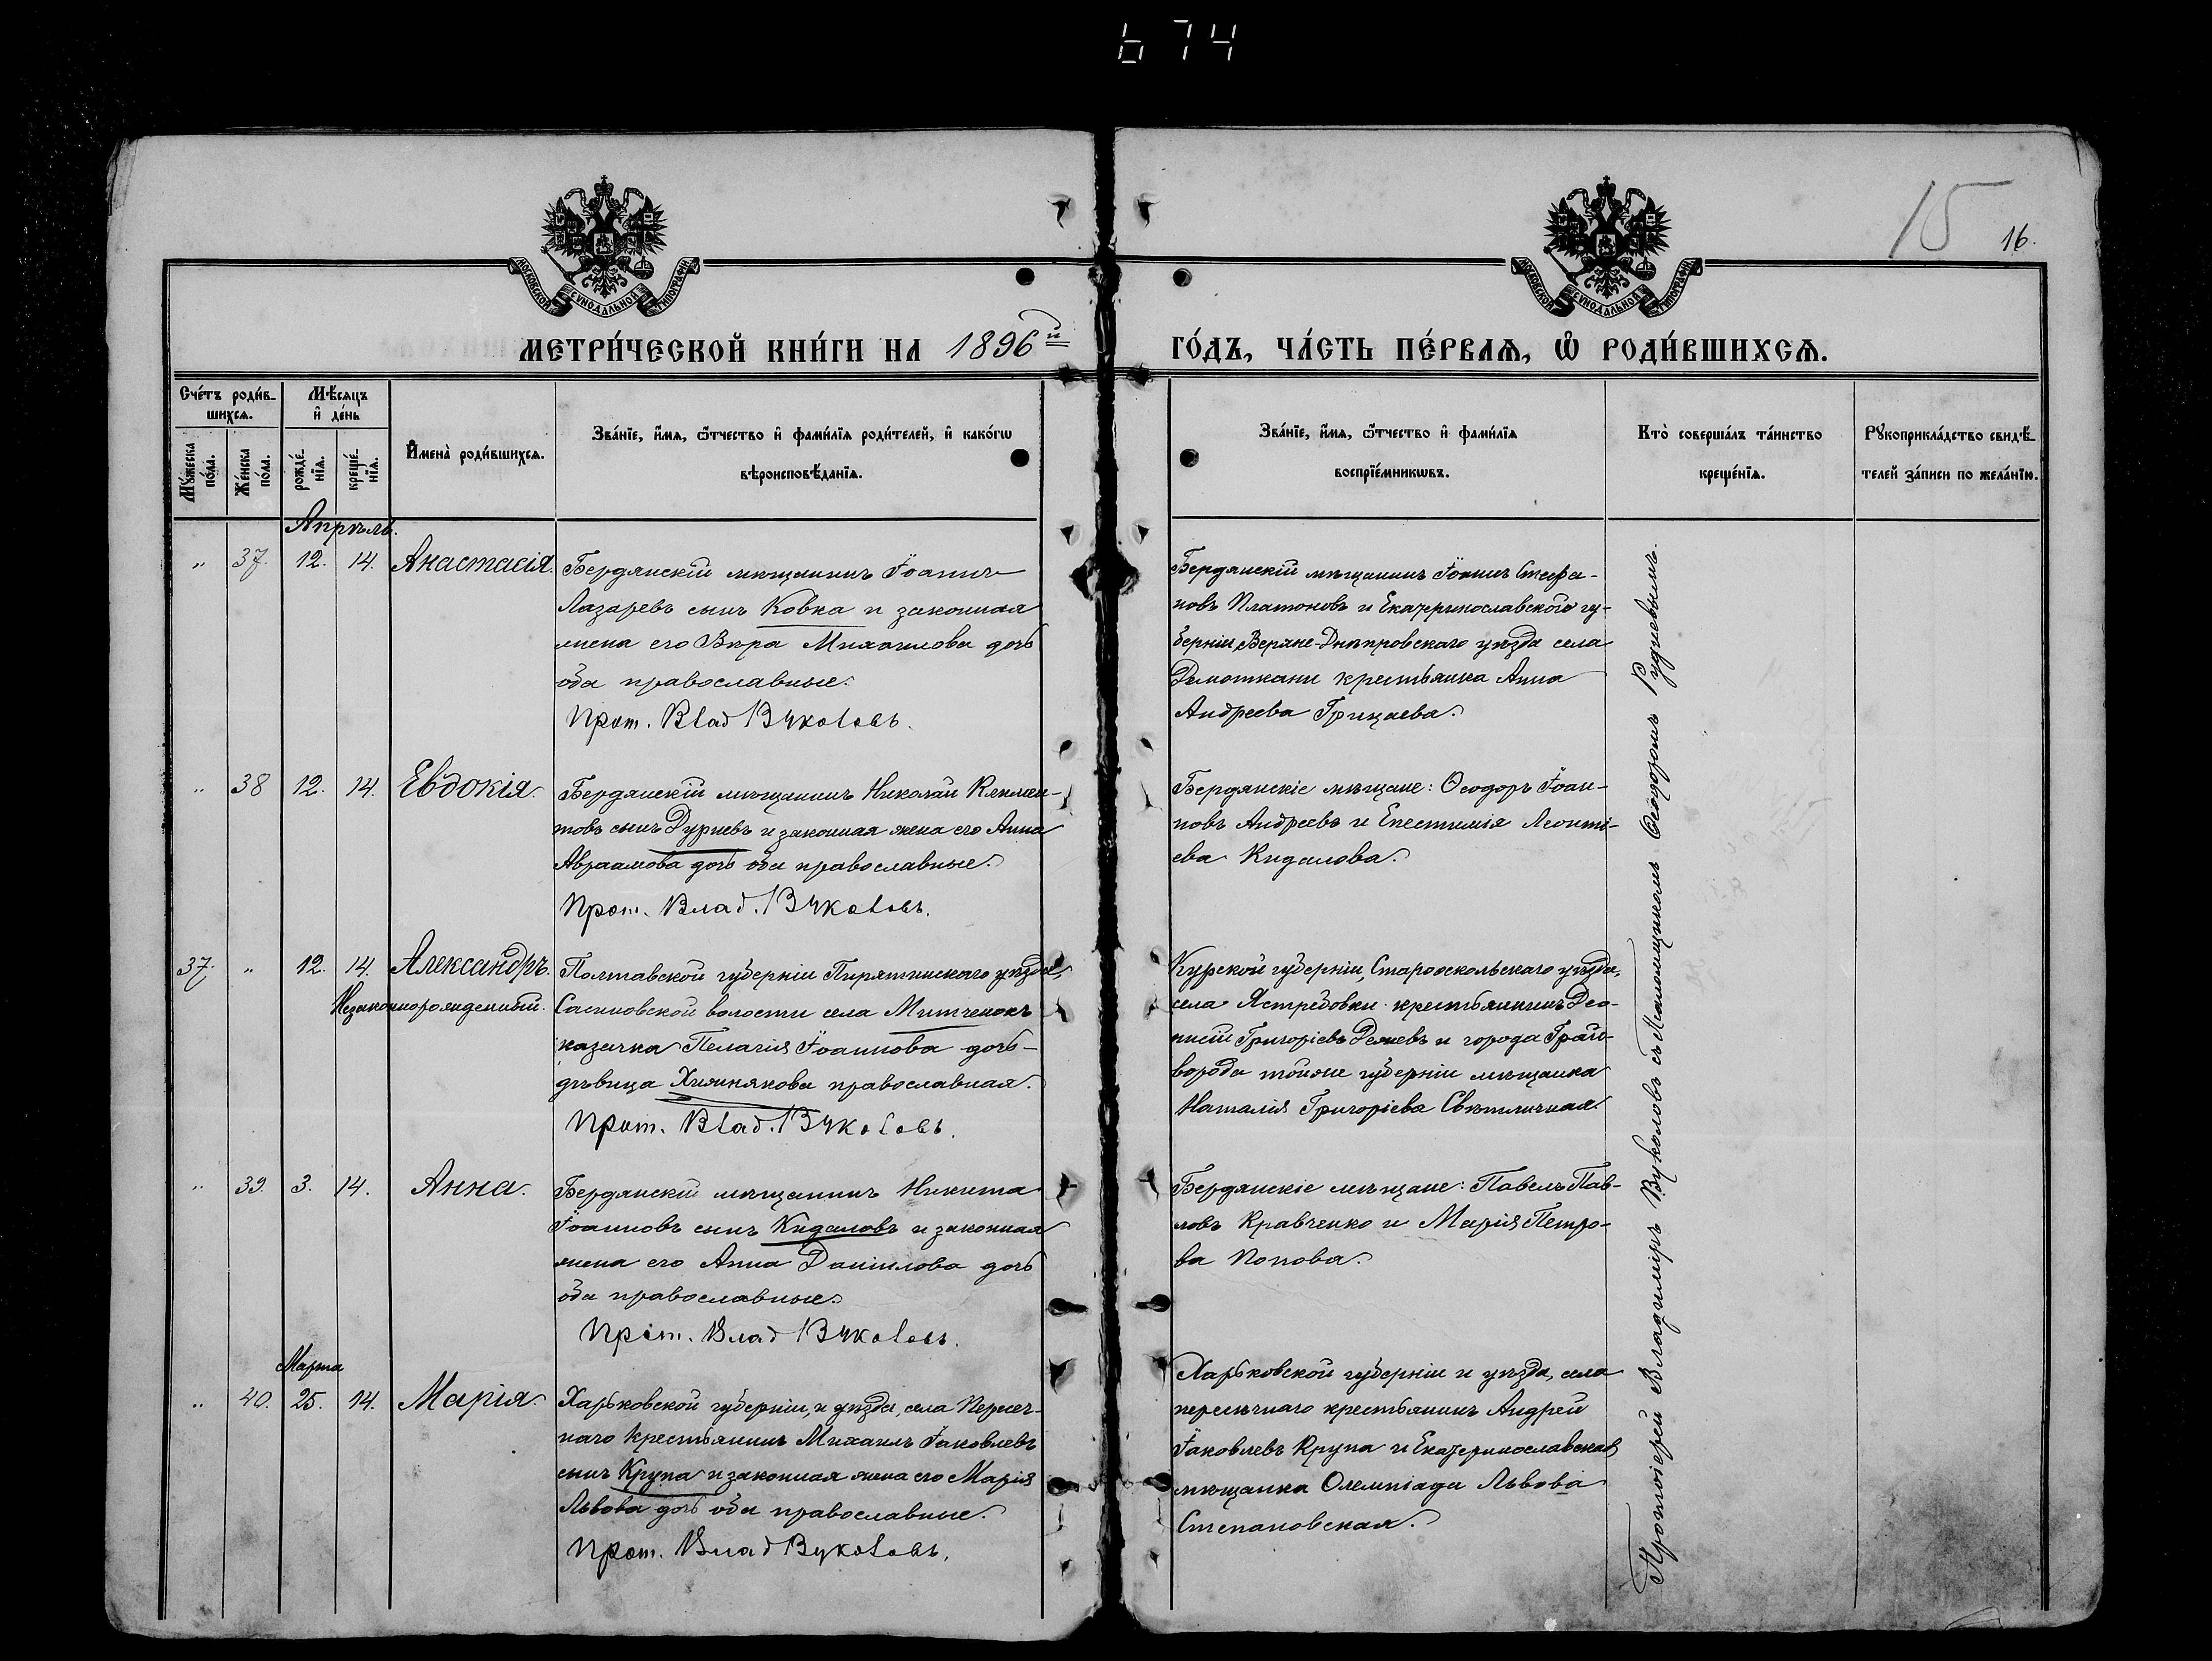 674
15
16.
МОСКОВСКОЙ СУНОДАЛЬНОЙ ТИПОГРАФІИ
МОСКОВСКОЙ СУНОДАЛЬНОЙ ТИПОГРАФІИ
МЕТРИ́ЧЕСКОЙ КНИ́ГИ НА 1896й
ГО́ДЪ, ЧА́СТЬ ПЕ́РВАѦ, Ѡ҆ РОДИ́ВШИХСѦ.
Сче́тъ роди́в-
шихсѧ.
Мѣ́сѧцъ
и҆ де́нь
Мꙋ́жеска по́ла.
Же́нска по́ла.
рожде́нїѧ.
креще́нїѧ.
И҆мена̀ роди́вшихсѧ.
Зва́нїе, и҆́мѧ, ѻ҆́тчество и҆ фами́лїѧ роди́телей, и҆ како́гѡ
вѣроисповѣ́данїѧ.
Зва́нїе, и҆́мѧ, ѻ҆́тчество и҆ фами́лїѧ
воспрїе́мникѡвъ.
Кто̀ соверша́лъ та́инство
креще́нїѧ.
Рꙋкоприкла́дство свидѣ́-
телей за́писи по жела́нїю.
Апрѣль.
„ 37. 12. 14. Анастасія.
Бердянскій мѣщанинъ Іоаннъ
Лазаревъ сынъ Ковка и законная
жена его Вѣра Михаилова дочь
оба православные.
Прот. Влад Вуколовъ.
Бердянскій мѣщанинъ Іоаннъ Стефа-
новъ Платоновъ и Екатеринославского гу-
берніи Верхне-Днѣпровскаго уѣзда села
Демоткани крестьянка Анна
Андреева Грицаева.
„ 38 12. 14. Евдокія.
Бердянскій мѣщанинъ Николай Климен-
товъ сынъ Дурневъ и законная жена его Анна
Авраамова дочь оба православные.
Прот. Влад. Вуколовъ.
Бердянскіе мѣщане: Ѳеодоръ Іоан-
новъ Андреевъ и Епестимія Леонті-
ева Кидалова.
37. „ 12. 14. Александръ.
Незаконнорожденный.
Полтавской губерніи Пирятинскаго уѣзда,
Сасиновской волости села Митченокъ
казачка Пелагія Іоаннова дочь-
дѣвица Хижнякова православная.
Прот. Влад. Вуколовъ.
Курской губерніи, Старооскольскаго уѣзда,
села Ястребовки крестьянинъ Део-
нисій Григорьевъ и города Грай-
ворода тойже губерніи мѣщанка
Наталія Григоріева Свѣтличная.
„ 39. 3. 14. Анна.
Бердянскій мѣщанинъ Никита
Іоанновъ сынъ Кидаловъ и законная
жена его Анна Даніилова дочь
оба православные.
Прот. Влад Вуколовъ.
Бердянскіе мѣщане: Павелъ Пав-
ловъ Кравченко и Марія Петро-
ва Попова.
Марта
„ 40. 25. 14. Марія.
Харьковской губерніи, и уѣзда, села Пересеч-
наго крестьянинъ Михаилъ Іаковлевъ
сынъ Крупа и законная жена его Марія
Львова дочь оба православные.
Прот. Влад Вуколовъ.
Харьковской губерніи и уѣзда, села
пересѣчнаго крестьянинъ Андрей
Іаковлевъ Крупа и Екатеринославская
мѣщанка Олемпіада Львова
Степановская.
Протоіерей Владиміръ Вуколовъ съ Псаломщикомъ Ѳеодоромъ Рудневымъ.